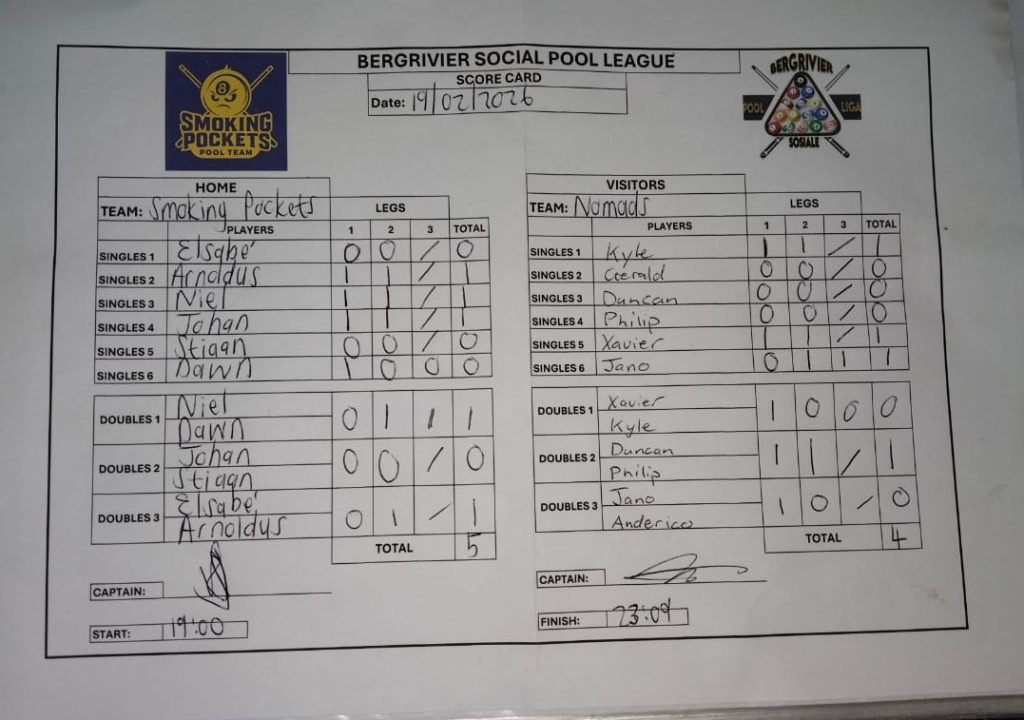 BERGRIVIER SOCIAL POOL LEAGUE
SCORE CARD
Date: 19/02/2026
8
SMOKING
POCKETS
POOL TEAM
BERGRIVIER
POOL LIGA
SOSIALE
HOME
TEAM: Smoking Pockets LEGS
PLAYERS 1 2 3 TOTAL
SINGLES 1 Elsabé 0 0 / 0
SINGLES 2 Arnoldus 1 1 / 1
SINGLES 3 Niel 1 1 / 1
SINGLES 4 Johan 1 1 / 1
SINGLES 5 Stiaan 0 0 / 0
SINGLES 6 Dawn 1 0 0 0
DOUBLES 1 Niel 0 1 1 1
Dawn
DOUBLES 2 Johan 0 0 / 0
Stiaan
DOUBLES 3 Elsabé 0 1 / 1
Arnoldus
TOTAL 5
CAPTAIN:
START: 19:00
VISITORS
TEAM: Nomads LEGS
PLAYERS 1 2 3 TOTAL
SINGLES 1 Kyle 1 1 / 1
SINGLES 2 Gerald 0 0 / 0
SINGLES 3 Duncan 0 0 / 0
SINGLES 4 Philip 0 0 / 0
SINGLES 5 Xavier 1 1 / 1
SINGLES 6 Jano 0 1 1 1
DOUBLES 1 Xavier 1 0 0 0
Kyle
DOUBLES 2 Duncan 1 1 / 1
Philip
DOUBLES 3 Jano 1 0 / 0
Anderico
TOTAL 4
CAPTAIN:
FINISH: 23:09